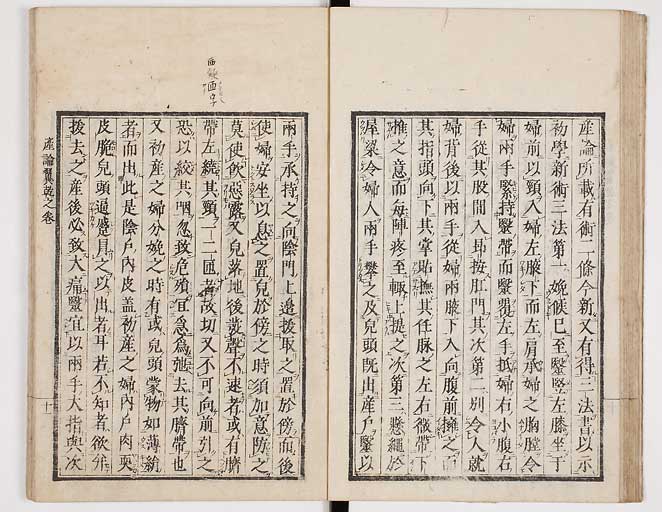 産論所載有術二條今新又有得三法書以示
初學新術三法第一娩候已至毉竪左膝坐于
婦前以頸入婦左腋下而左肩承婦之胸膛令
婦兩手緊持毉帶而毉覆左手抵婦右小腹右
手從其股間入昻按肛門其次第二別令人就
婦背後以兩手從婦兩腋下入向腹前擁之而
其指頭向下其掌貼撫其任脉之左右微帶下
推之意而每陣疼至輙上提之次第三懸繩於
屋梁令婦人兩手攀之及兒頭既出産戸毉以
兩手承持之向陰門上邊援取之置於傍而後
使婦安坐以息之置兒於傍之時須加意防之
莫使飲惡露又兒落地後發聲不速者或有臍
帶左繞其頸一二匝者故切又不可向前引之
恐以絞其咽忽致危殞宜急爲弛去其臍帶也
又初産之婦分娩之時有或兒頭蒙物如薄絹
者而出此是陰戸内皮蓋初産之婦内戸肉
皮脆兒頭逼蹙具之以出者耳若不知者欲
援去之産後必致大痛毉宜以兩手大指與次
産論翼乾之卷
十